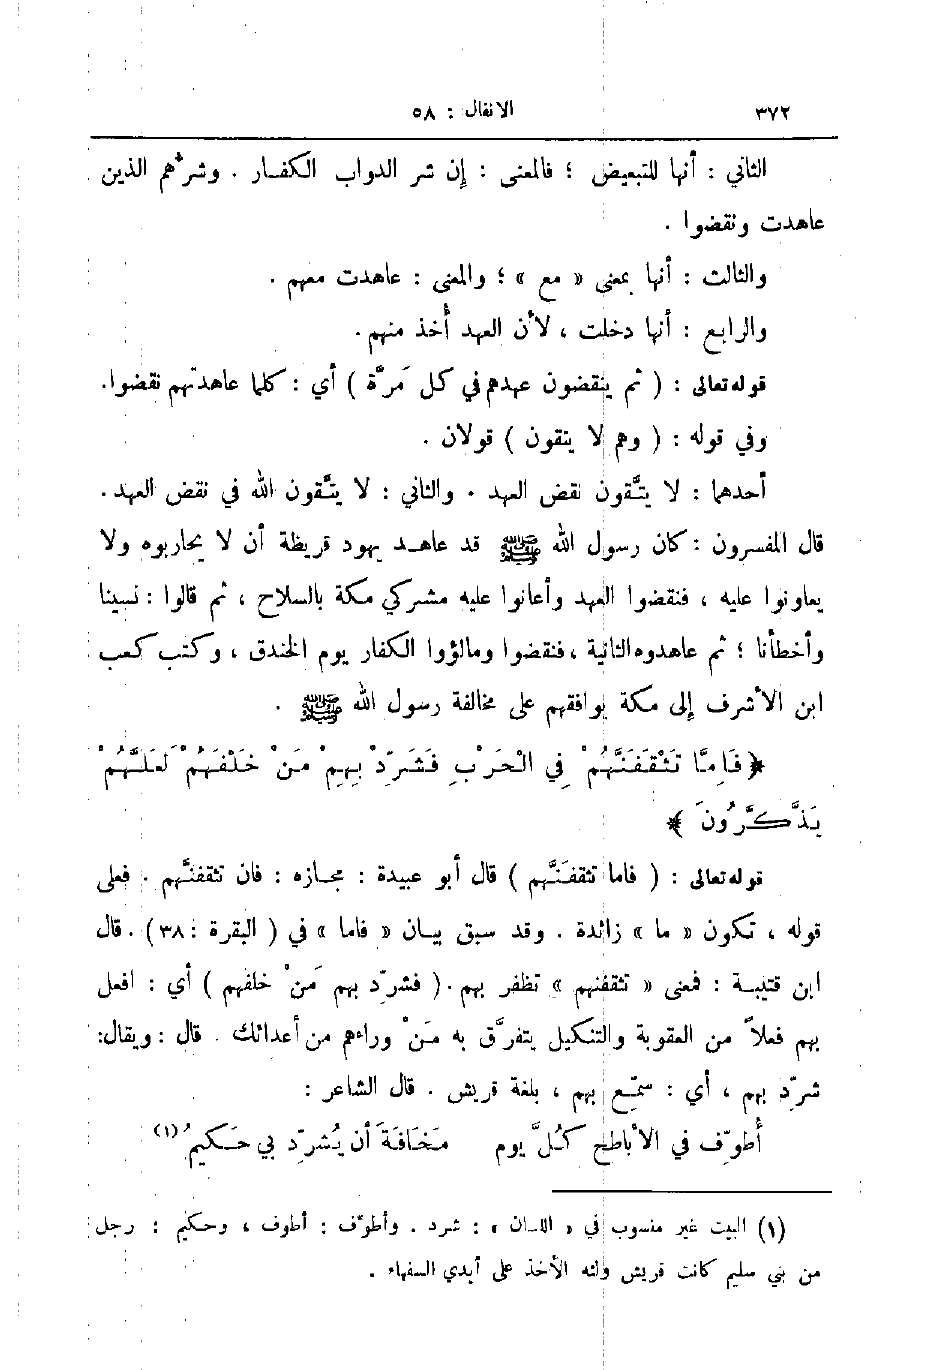 ٣٧٢ الانفال : ٥٨
الثاني : أنها للتبعيض ؛ فالمعنى : إن شر الدواب الكفار . وشرُّهم الذين
عاهدت ونقضوا .
والثالث : أنها بمعنى « مع » ؛ والمعنى : عاهدت معهم .
والرابع : أنها دخلت ، لأن العهد أُخذ منهم .
قوله تعالى : ( ثم ينقضون عهدهم في كل مَرَّة ) أي : كلما عاهدتهم نقضوا.
وفي قوله : ( وهم لا يتقون ) قولان .
أحدهما : لا يتَّقون نقض العهد . والثاني : لا يتَّقون الله في نقض العهد .
قال المفسرون : كان رسول الله ﷺ قد عاهد يهود قريظة أن لا يحاربوه ولا
يعاونوا عليه ، فنقضوا العهد وأعانوا عليه مشركي مكة بالسلاح ، ثم قالوا : نسينا
وأخطأنا ؛ ثم عاهدوه الثانية ، فنقضوا ومالؤوا الكفار يوم الخندق ، وكتب كعب
ابن الأشرف إلى مكة يوافقهم على مخالفة رسول الله ﷺ .
﴿ فَاِمَّا تَثْقَفَنَّهُمْ فِي الْحَرْبِ فَشَرِّدْ بِهِمْ مَنْ خَلْفَهُمْ لَعَلَّهُمْ
يَذَّكَّرُونَ ﴾
قوله تعالى : ( فاما تثقفَنَّهم ) قال أبو عبيدة : مجازه : فان تثقفنَّهم . فعلى
قوله ، تكون « ما » زائدة . وقد سبق بيان « فاما » في ( البقرة : ٣٨) . قال
ابن قتيبة : فمعنى « تثقفنهم » تظفر بهم .( فشرِّد بهم مَنْ خلفهم ) أي : افعل
بهم فعلاً من العقوبة والتنكيل يتفرَّق به مَنْ وراءهم من أعدائك . قال : ويقال:
شرِّد بهم ، أي : سمِّع بهم ، بلغة قريش . قال الشاعر :
أُطوِّف في الأباطح كُلَّ يوم مَخَافَةَ أن يُشرِّد بي حَكيمُ (١)
(١) البيت غير منسوب في « اللسان » : شرد . وأطوِّف : أطوف ، وحكيم : رجل
من بني سليم كانت قريش ولته الأخذ على أيدي السفهاء .